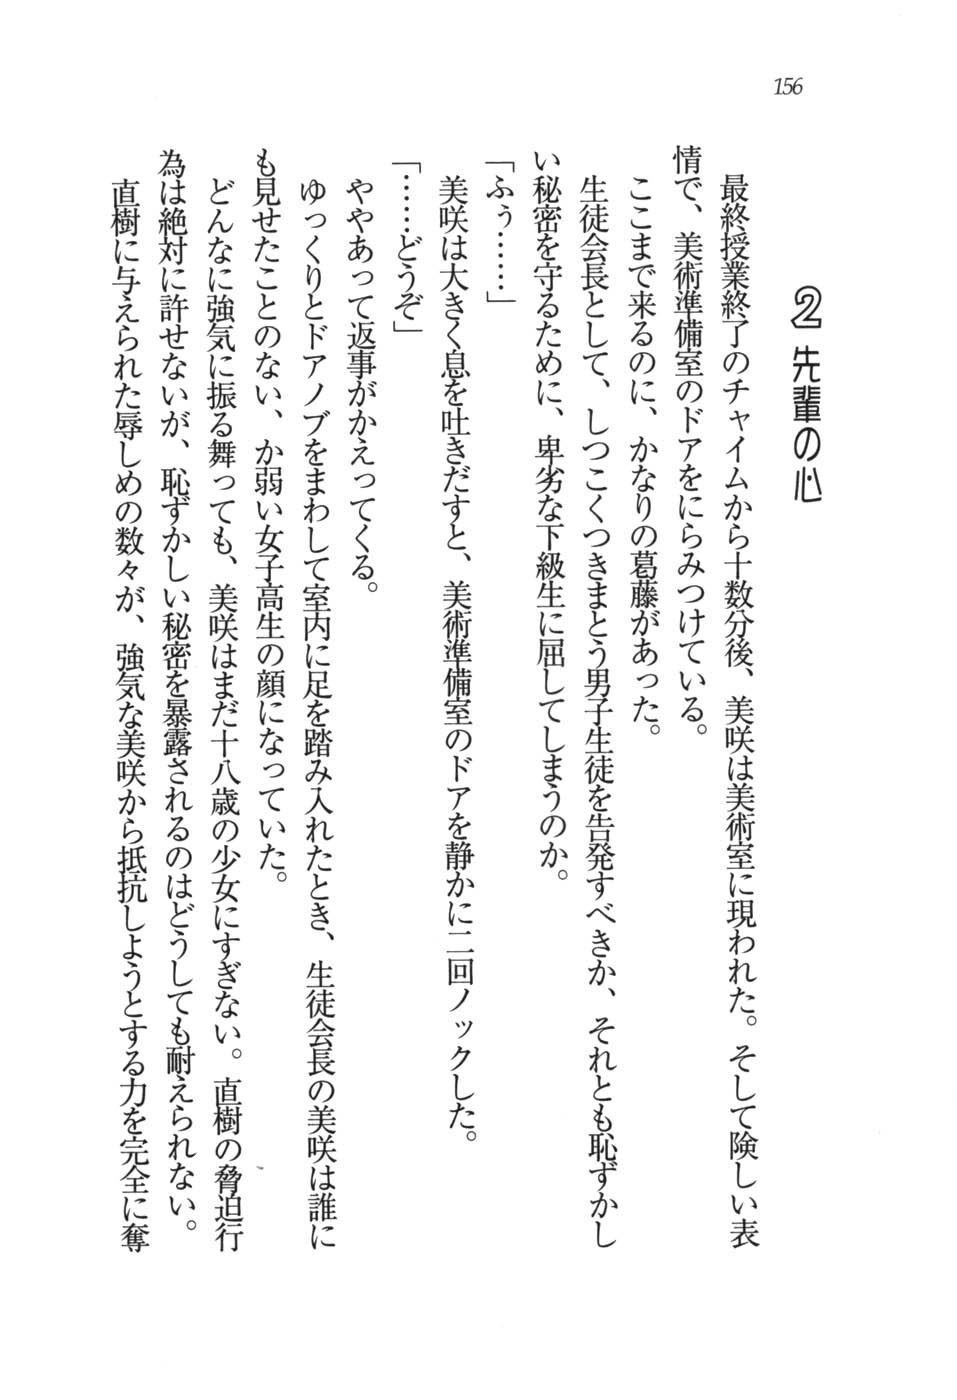 156
2 先輩の心
最終授業終了のチャイムから十数分後、美咲は美術室に現われた。そして険しい表
情で、美術準備室のドアをにらみつけている。
ここまで来るのに、かなりの葛藤があった。
生徒会長として、しつこくつきまとう男子生徒を告発すべきか、それとも恥ずかし
い秘密を守るために、卑劣な下級生に屈してしまうのか。
「ふぅ……」
美咲は大きく息を吐きだすと、美術準備室のドアを静かに二回ノックした。
「……どうぞ」
ややあって返事がかえってくる。
ゆっくりとドアノブをまわして室内に足を踏み入れたとき、生徒会長の美咲は誰に
も見せたことのない、か弱い女子高生の顔になっていた。
どんなに強気に振る舞っても、美咲はまだ十八歳の少女にすぎない。直樹の脅迫行
為は絶対に許せないが、恥ずかしい秘密を暴露されるのはどうしても耐えられない。
直樹に与えられた辱しめの数々が、強気な美咲から抵抗しようとする力を完全に奪